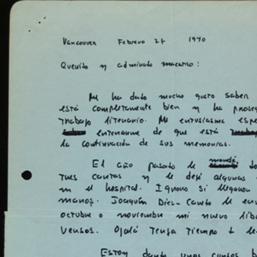 Vancouver Febrero 27 1970
Querido y admirado maestro:
Me ha dado mucho gusto saber
está completamente bien y ha prose
trabajo literario. Me entusiasma espe
enterarme de que está
la continuación de sus memorias.
El año pasado le mandé
tres cartas y le dejé algunas
en el hospital. Ignoro si llegaron
manos. Joaquín Diez-Canedo le env
octubre o noviembre mi nuevo lib
versos. Ojalá tenga tiempo
Estoy dando unos cursos